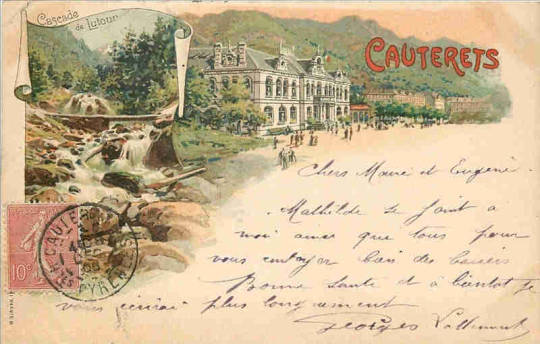 Cascade
de Lutour
CAUTERETS
Chers Marie et Eugène.
Mathilde se joint a
moi ainsi que tous pour
vous envoyer bien des baisers
Bonne Santé et à bientôt je
vous écrirai plus longuement
Georges
10
CAUTERETS
HTES PYRÉNÉES